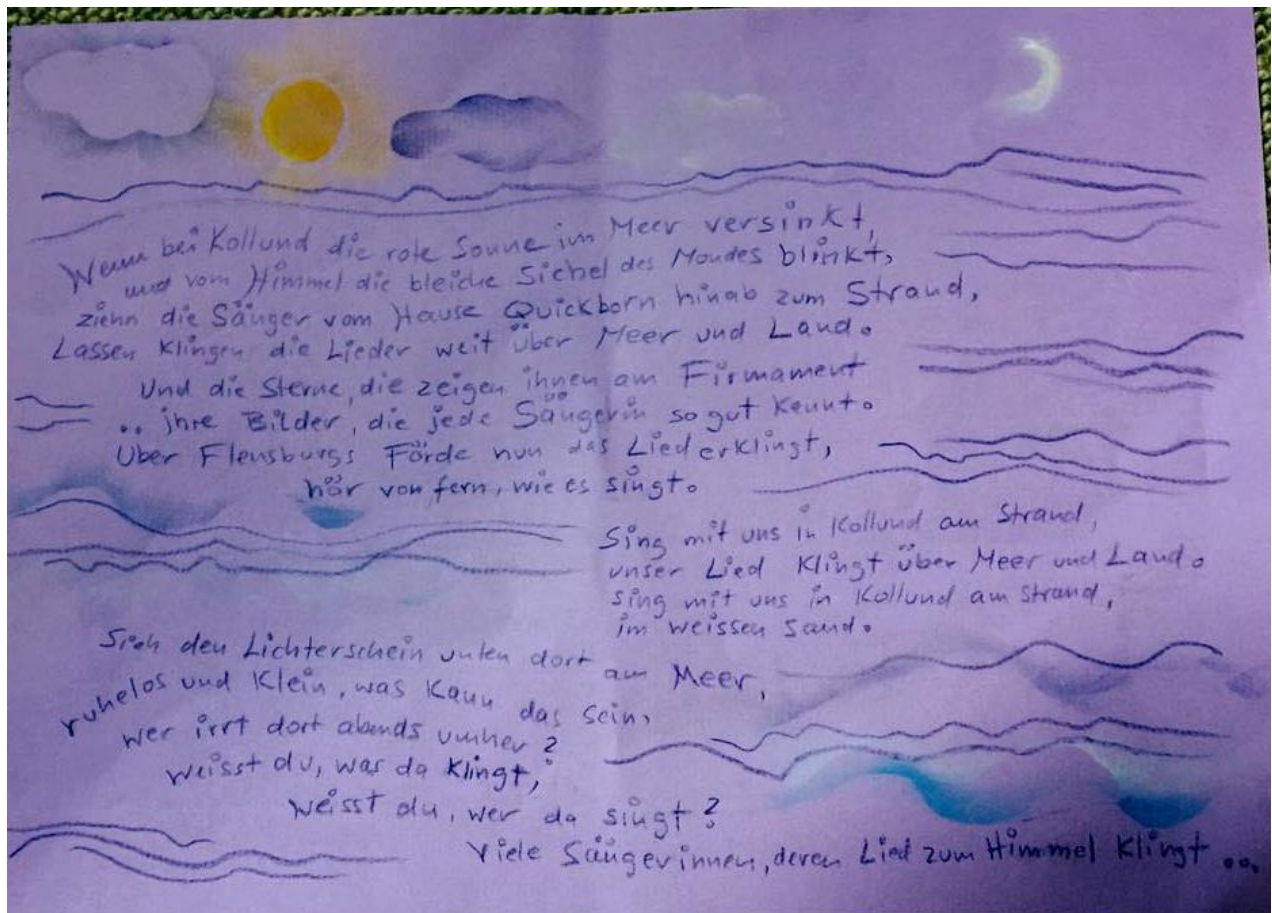 Wenn bei Kollund die rote Sonne im Meer versinkt,
und vom Himmel die bleiche Sichel des Mondes blinkt,
ziehn die Sänger vom Hause Quickborn hinab zum Strand,
Lassen Klingen die Lieder weit über Meer und Land.
Und die Sterne, die zeigen ihnen am Firmament
ihre Bilder, die jede Sängerin so gut Kennt.
Über Flensburgs Förde nun das Lied erklingt,
hör von fern, wie es singt.
Sing mit uns in Kollund am Strand,
unser Lied Klingt über Meer und Land.
Sing mit uns in Kollund am Strand,
im weissen Sand.
Sieh den Lichterschein unten dort am Meer,
ruhelos und Klein, was Kann das sein,
wer irrt dort abends umher?
Weisst du, was da Klingt,
Weisst du, wer da singt?
Viele Sängerinnen, deren Lied zum Himmel Klingt ...